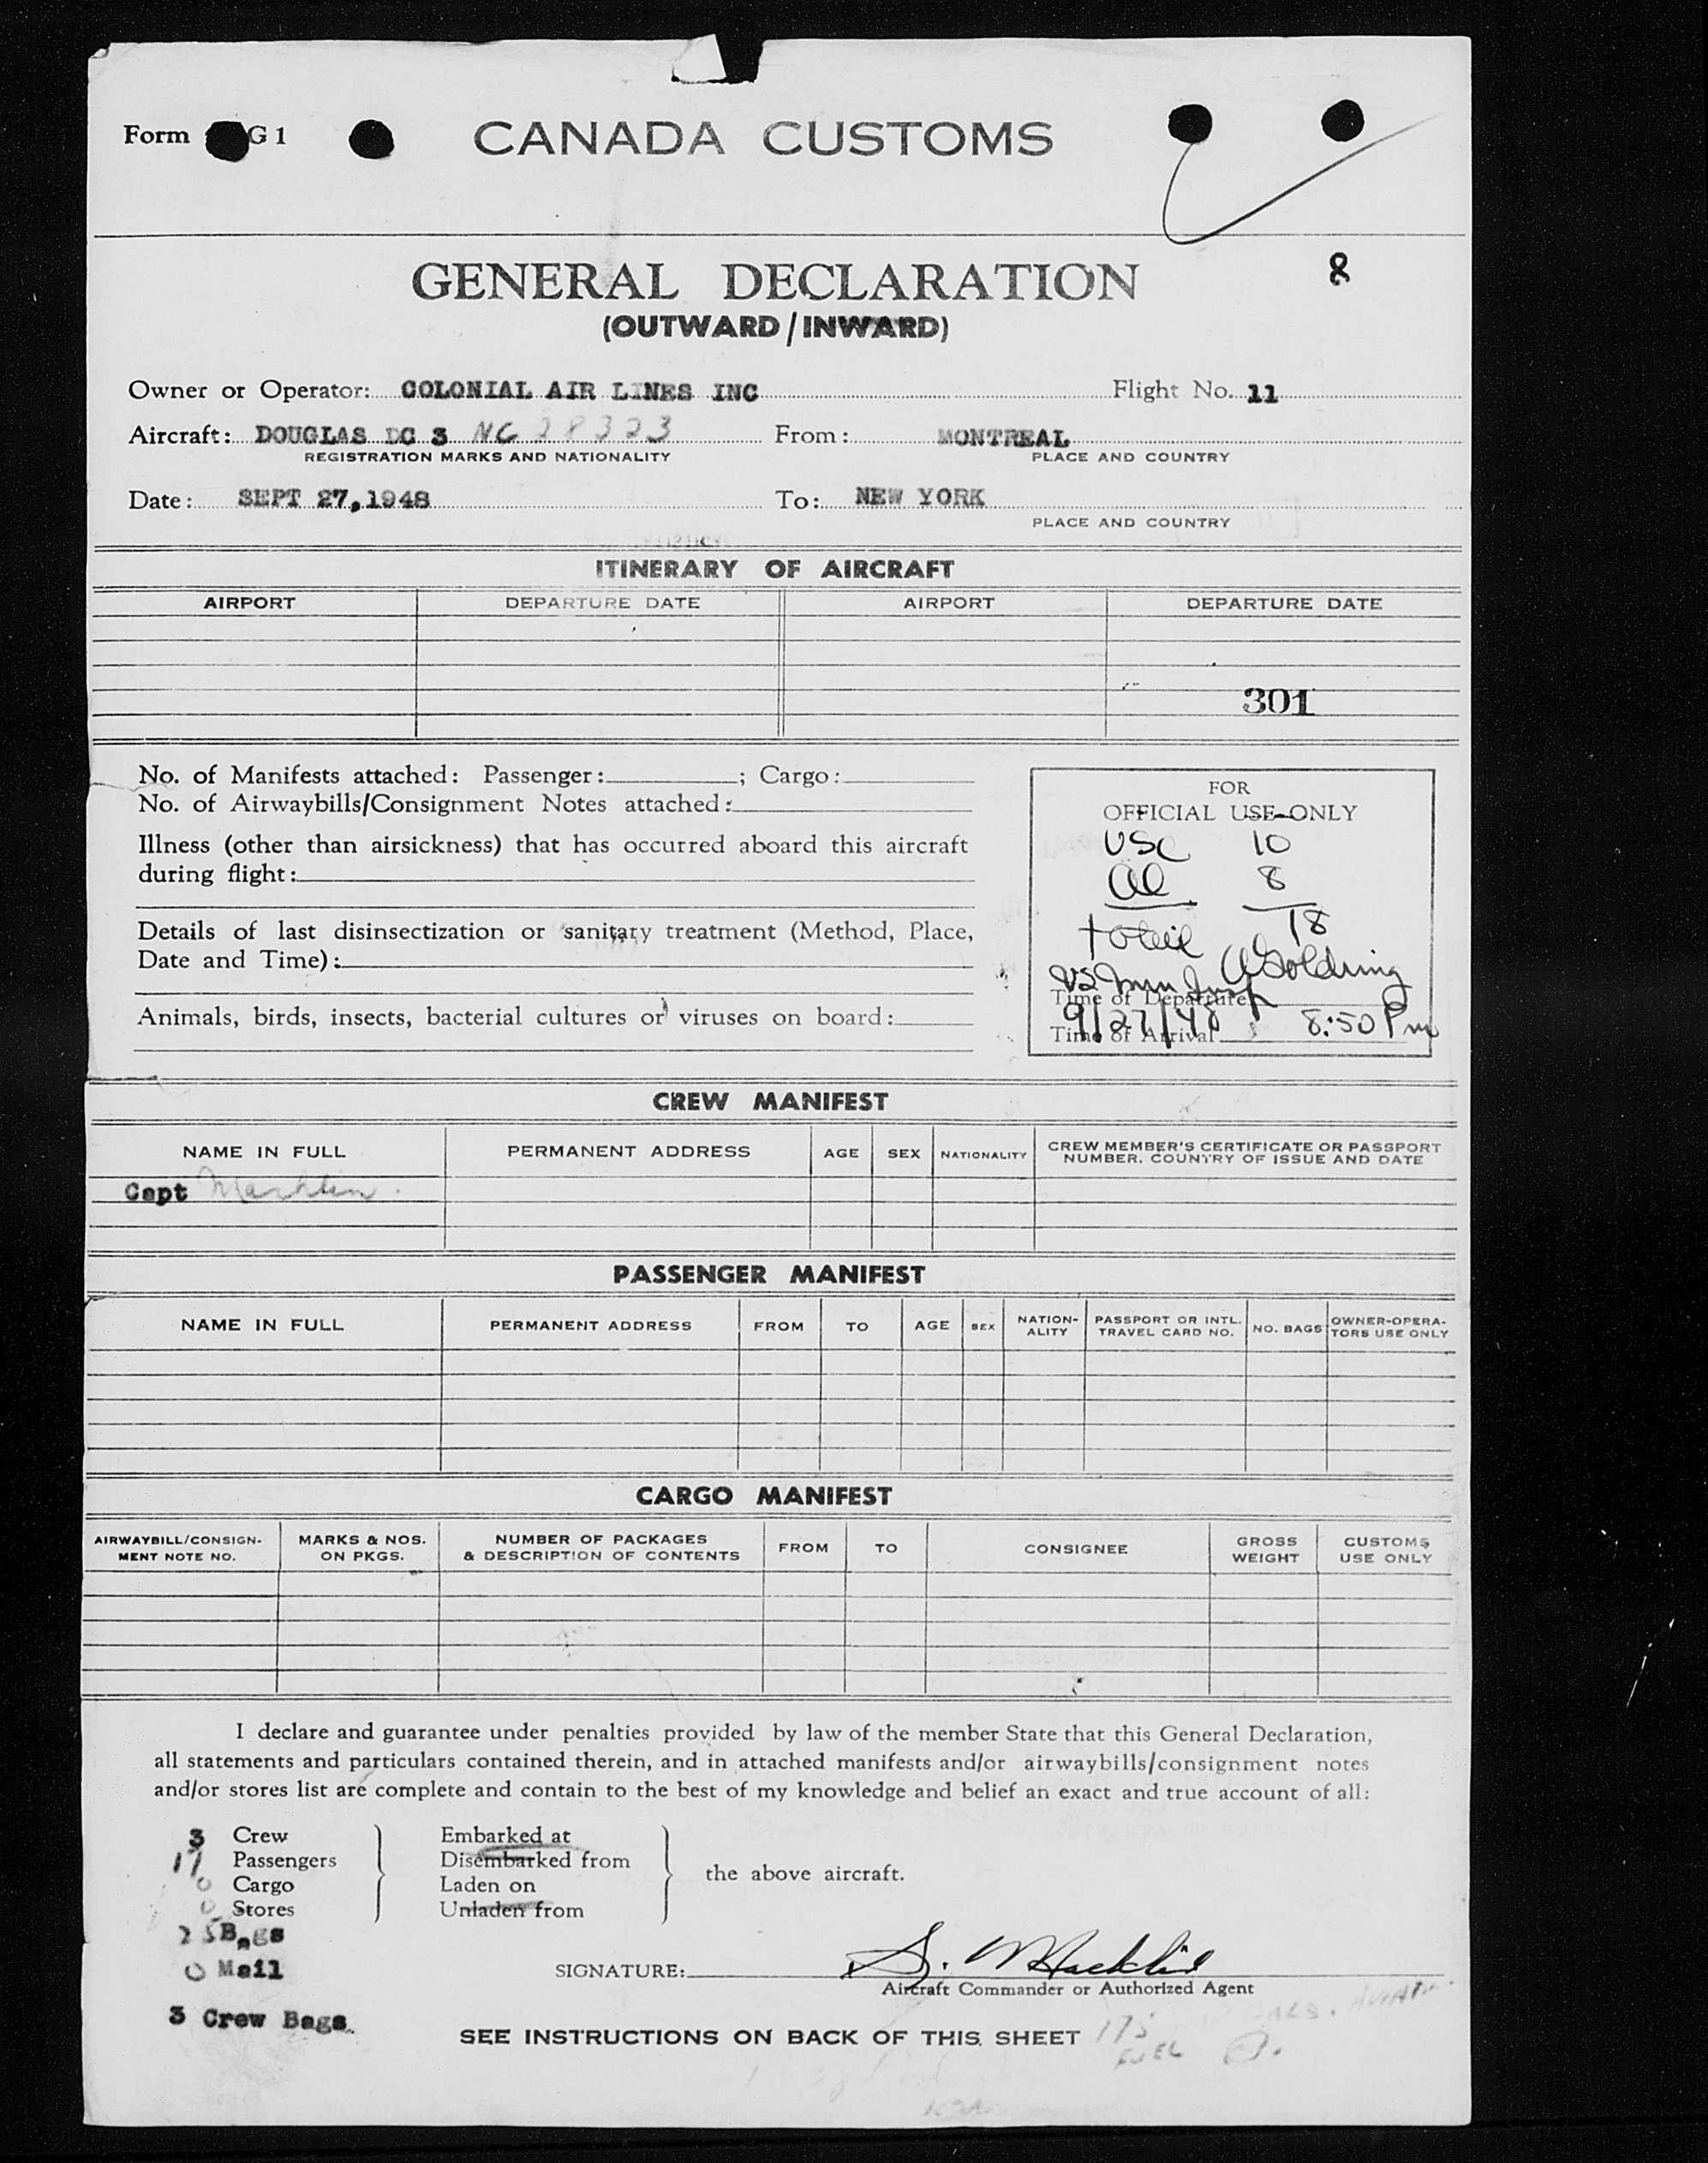 Form G 1
CANADA CUSTOMS
8
GENERAL DECLARATION
(OUTWARD/INWARD)
Owner or Operator: COLONIAL AIR LINES INC Flight No. 11
Aircraft: DOUGLAS DC 3 NC 28323 From: MONTREAL
REGISTRATION MARKS AND NATIONALITY PLACE AND COUNTRY
Date: SEPT 27,1948 To: NEW YORK
PLACE AND COUNTRY
ITINERARY OF AIRCRAFT
AIRPORT DEPARTURE DATE AIRPORT DEPARTURE DATE
301
No. of Manifests attached: Passenger: ; Cargo:
No. of Airwaybills/Consignment Notes attached:
Illness (other than airsickness) that has occurred aboard this aircraft
during flight:
Details of last disinsectization or sanitary treatment (Method, Place,
Date and Time):
Animals, birds, insects, bacterial cultures or viruses on board:
FOR
OFFICIAL USE ONLY
USC 10
al 8
total 18
Goldring
US Imm Insp
Time of Departure
9/27/48 8:50 Pm
Time of Arrival
CREW MANIFEST
NAME IN FULL PERMANENT ADDRESS AGE SEX NATIONALITY CREW MEMBER'S CERTIFICATE OR PASSPORT
NUMBER, COUNTRY OF ISSUE AND DATE
Capt Macklin
PASSENGER MANIFEST
NAME IN FULL PERMANENT ADDRESS FROM TO AGE SEX NATION-
ALITY PASSPORT OR INTL.
TRAVEL CARD NO. NO. BAGS OWNER-OPERA-
TORS USE ONLY
CARGO MANIFEST
AIRWAYBILL/CONSIGN-
MENT NOTE NO. MARKS & NOS.
ON PKGS. NUMBER OF PACKAGES
& DESCRIPTION OF CONTENTS FROM TO CONSIGNEE GROSS
WEIGHT CUSTOMS
USE ONLY
I declare and guarantee under penalties provided by law of the member State that this General Declaration,
all statements and particulars contained therein, and in attached manifests and/or airwaybills/consignment notes
and/or stores list are complete and contain to the best of my knowledge and belief an exact and true account of all:
3 Crew Embarked at
Passengers Disembarked from
0 Cargo Laden on
0 Stores Unladen from
the above aircraft.
25 Bags
0 Mail
SIGNATURE: S. Macklin
Aircraft Commander or Authorized Agent
3 Crew Bags
SEE INSTRUCTIONS ON BACK OF THIS SHEET
175
FUEL